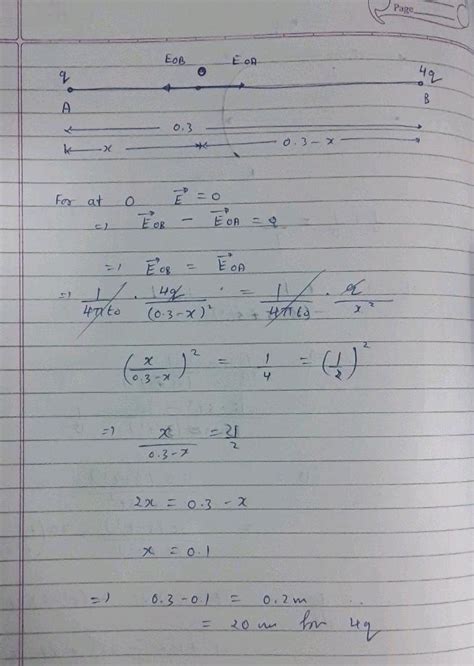 Page
E_OB O E_OA
q 4q
A B
0.3
x 0.3 - x
For at O E⃗ = 0
=) E⃗_OB - E⃗_OA = 0
=) E⃗_OB = E⃗_OA
=) 1/4πε₀ · 4q/(0.3-x)² = 1/4πε₀ · q/x²
(x/0.3-x)² = 1/4 = (1/2)²
=) x/0.3-x = 1/2
2x = 0.3 - x
x = 0.1
=) 0.3-0.1 = 0.2m
= 20 cm for 4q